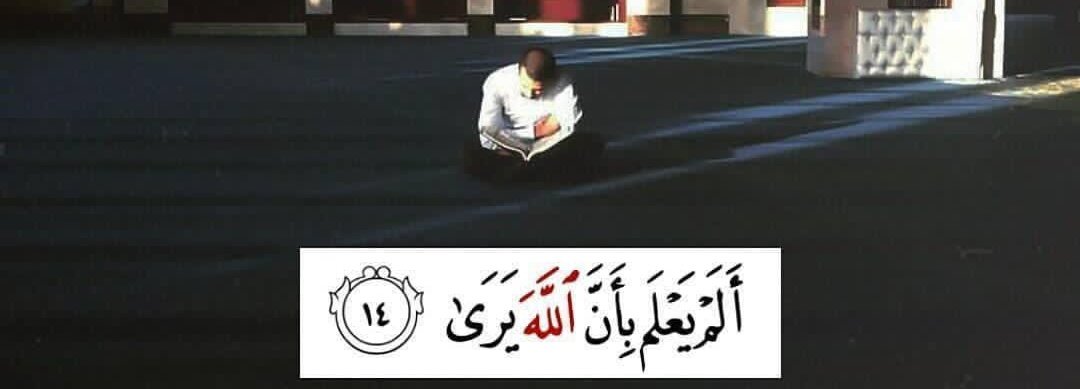 أَلَمۡ يَعۡلَم بِأَنَّ ٱللَّهَ يَرَىٰ ١٤